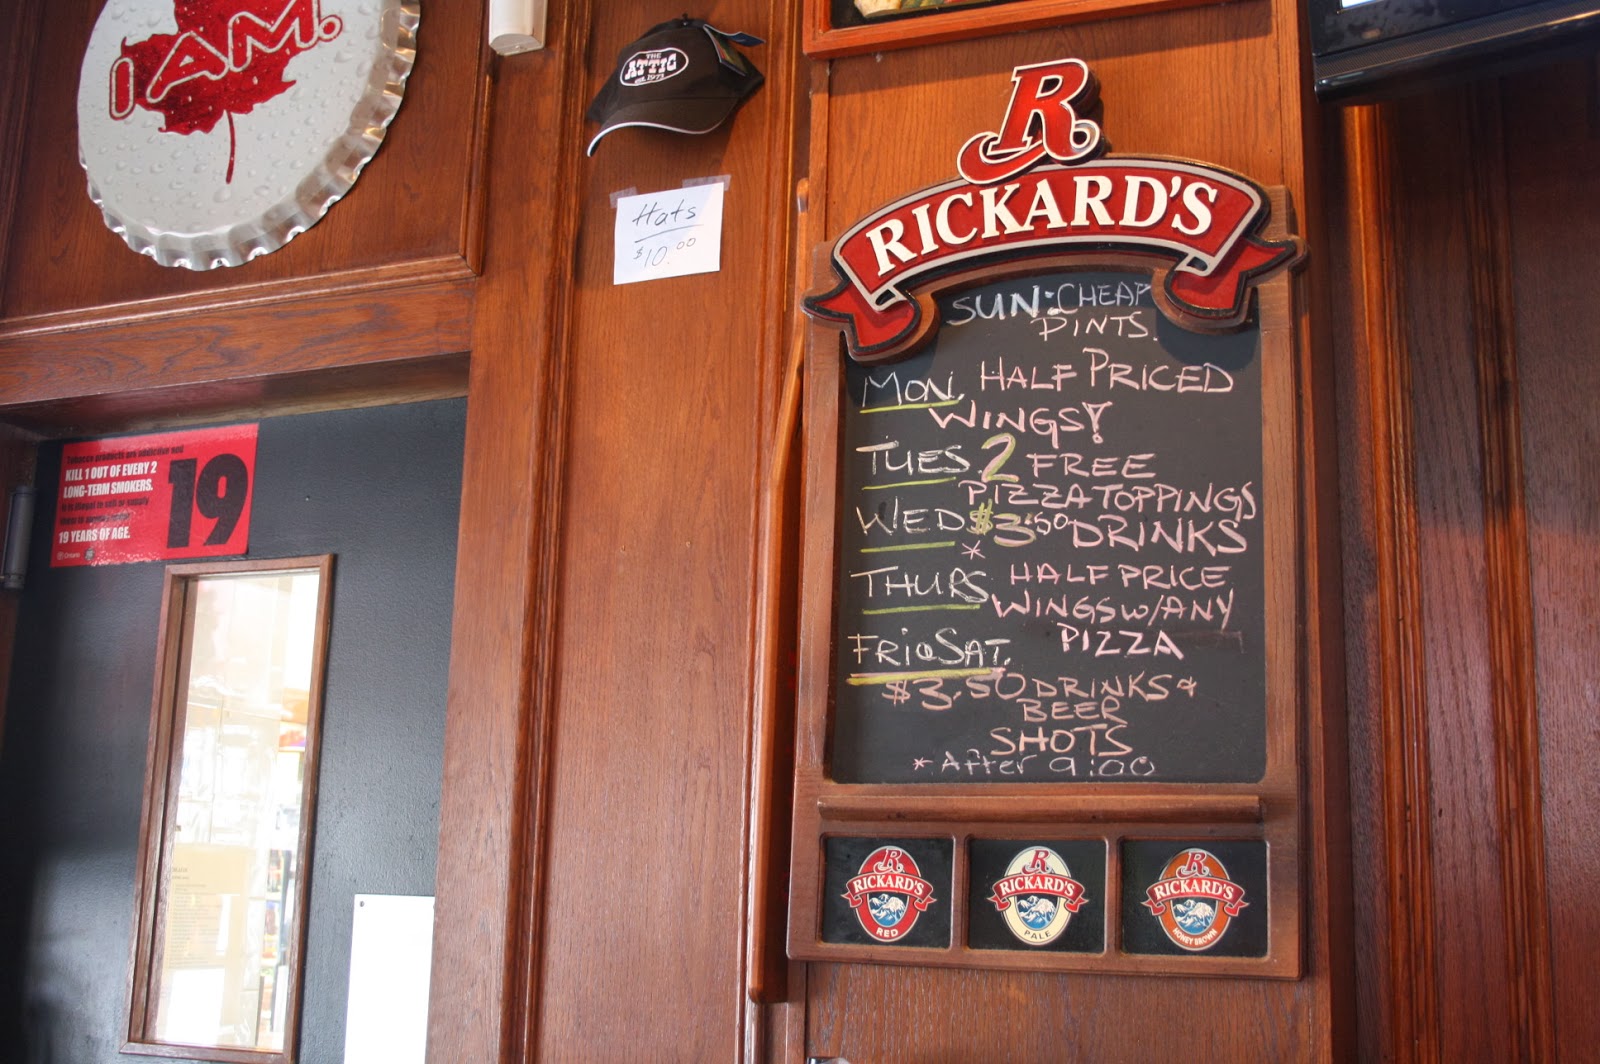 I AM.
THE
ATTIC
Hats
$10.00
R
RICKARD'S
SUN: CHEAP
PINTS.
MON. HALF PRICED
WINGS!
TUES. 2 FREE
PIZZA TOPPINGS
WED $3.50 DRINKS
*
THURS HALF PRICE
WINGS W/ANY
PIZZA
FRI & SAT.
$3.50 DRINKS &
BEER
SHOTS
* After 9:00
Tobacco products are addictive and
KILL 1 OUT OF EVERY 2
LONG-TERM SMOKERS.
It is illegal to sell or supply
19 YEARS OF AGE.
19
Ontario
R
RICKARD'S
RED
R
RICKARD'S
PALE
R
RICKARD'S
HONEY BROWN